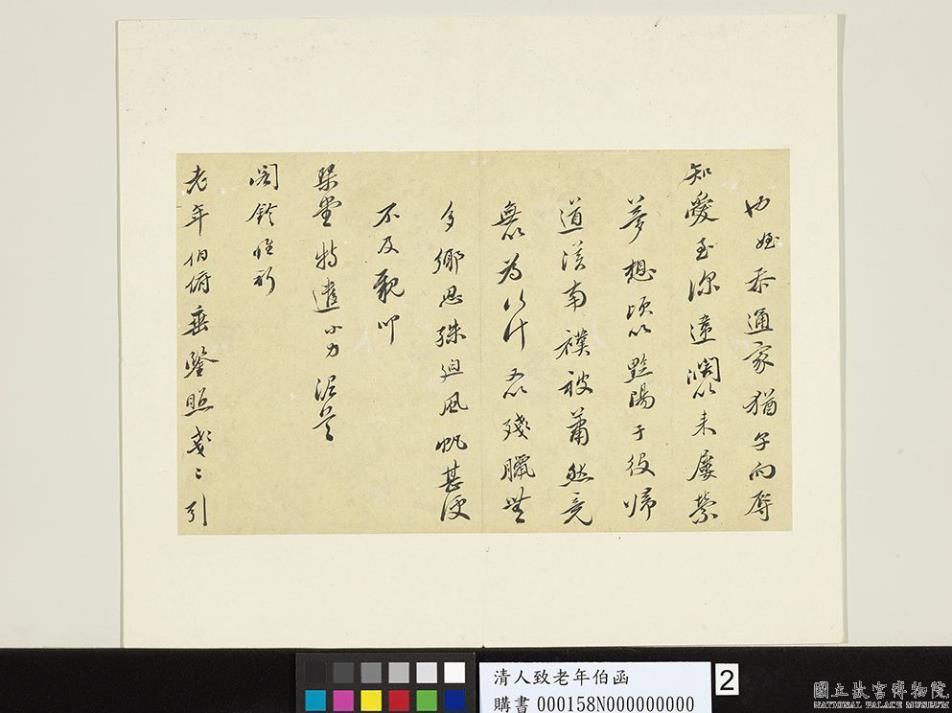 也姪忝通家猶子向辱
知愛至深違闊以來屢縈
夢想頃以豔陽于役歸
道溪南襆被蕭然竟
無以為以什又以殘臘無
多鄉思殊迫風帆甚便
不及親叩
琹堂特遣小力
閽鈴惟祈
老年伯俯垂鑒照彧〻引
清人致老年伯函
購書 000158N000000000
2
國立故宮博物院
NATIONAL PALACE MUSEUM